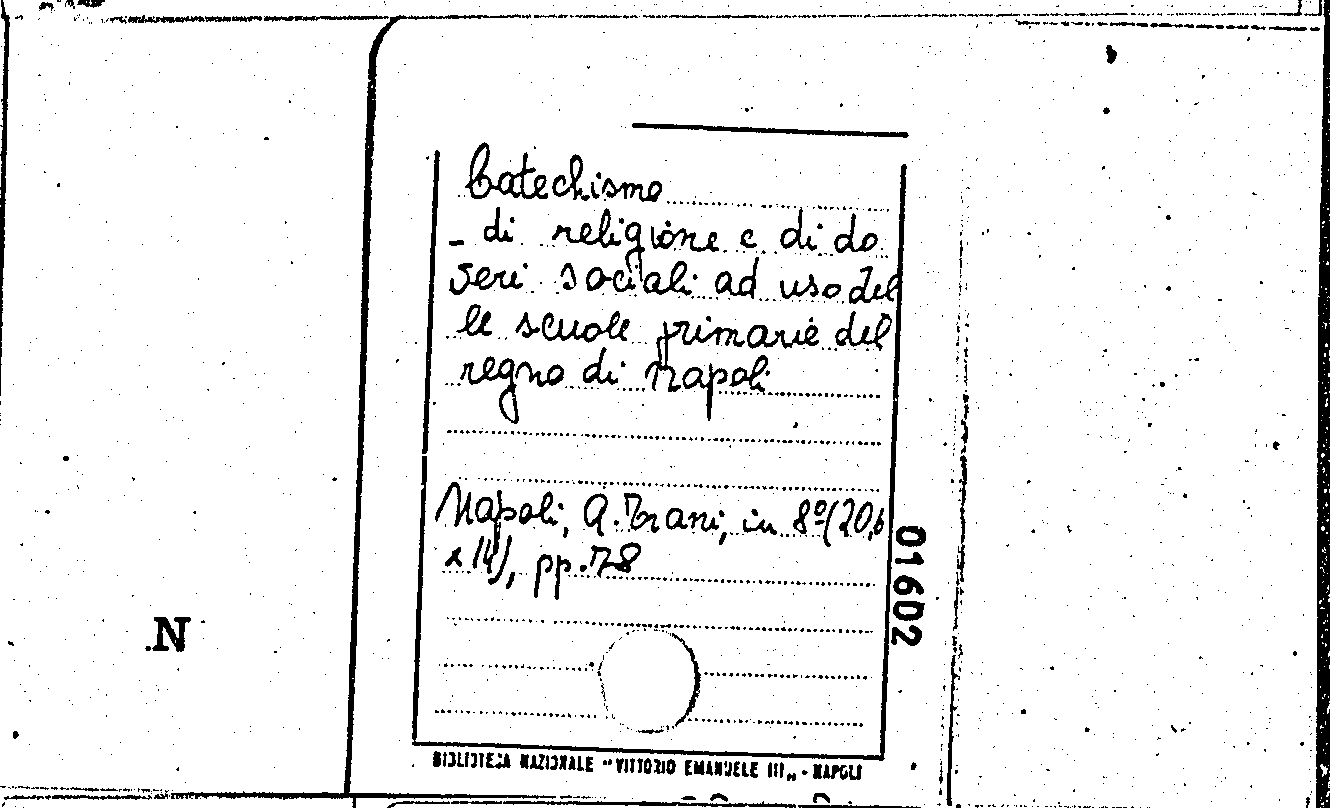 Catechismo
- di religione e di do
veri sociali ad uso del
le scuole primarie del
regno di Napoli
Napoli, A. Trani, in 8º (20,6
x 14), pp. 78
01602
N
BIBLIOTECA NAZIONALE "VITTORIO EMANUELE III" - NAPOLI